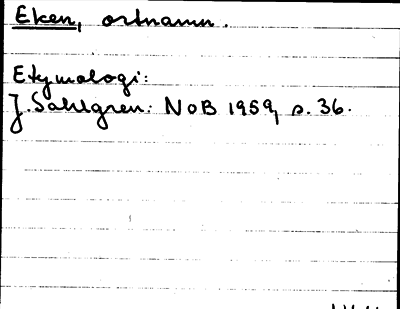 Eken, ortnamn.
Etymologi:
J. Sahlgren: NoB 1959, s. 36.